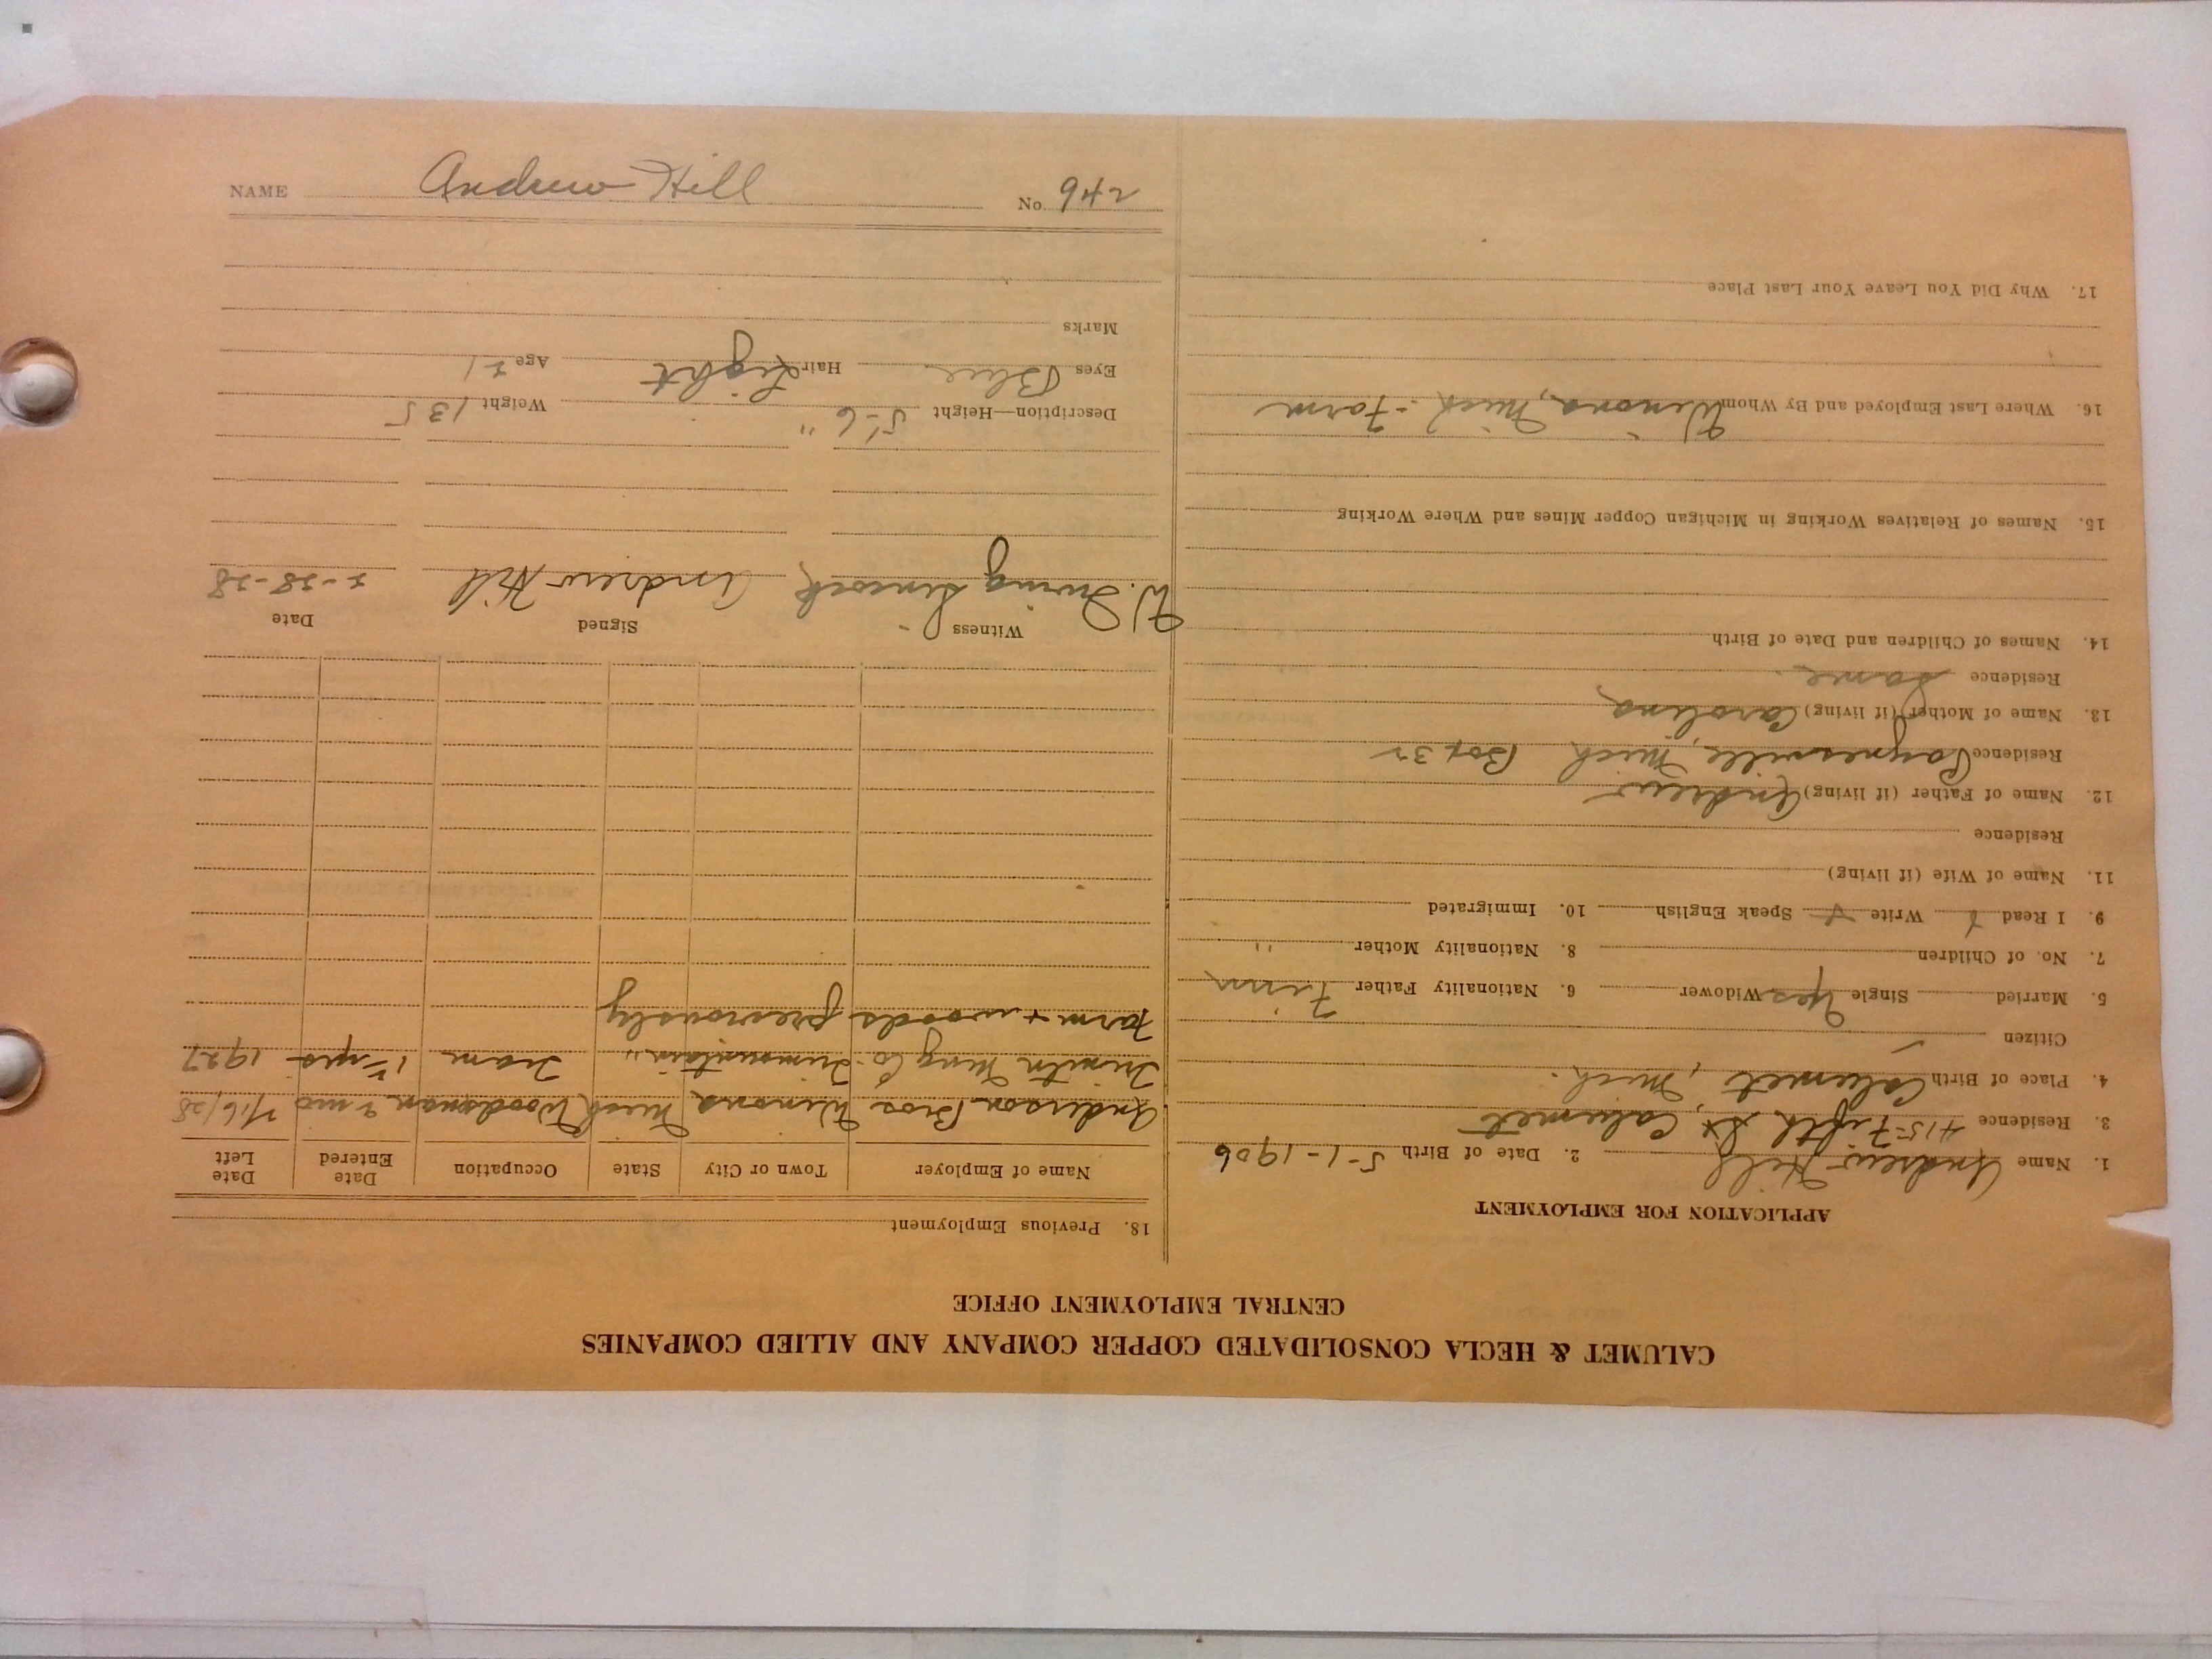 CALUMET & HECLA CONSOLIDATED COPPER COMPANY AND ALLIED COMPANIES
CENTRAL EMPLOYMENT OFFICE
APPLICATION FOR EMPLOYMENT
1. Name Andrew Hill 2. Date of Birth 5-1-1906
3. Residence 415-Fifth St, Calumet
4. Place of Birth Calumet, Mich.
Citizen
5. Married Single Yes Widower 6. Nationality Father Finn
7. No. of Children 8. Nationality Mother "
9. I Read Write Speak English 10. Immigrated
11. Name of Wife (if living)
Residence
12. Name of Father (if living) Andrew
Residence Paynesville, Mich Box 32
13. Name of Mother (if living) Carolina
Residence Same
14. Names of Children and Date of Birth
15. Names of Relatives Working in Michigan Copper Mines and Where Working
16. Where Last Employed and By Whom Winona, Mich - Farm
17. Why Did You Leave Your Last Place
18. Previous Employment
Name of Employer Town or City State Occupation Date Entered Date Left
Anderson Bros Winona Mich Woodsman 2 mo 2/16/28
Trimtn Mng Co. Trimountain " Tram yrs 1927
Farm + woods previously
Witness Signed Date
W. Irving Andrew Hill 2-28-28
Description—Height 5'6" Weight 135
Eyes Blue Hair Light Age 21
Marks
NAME Andrew Hill No. 942